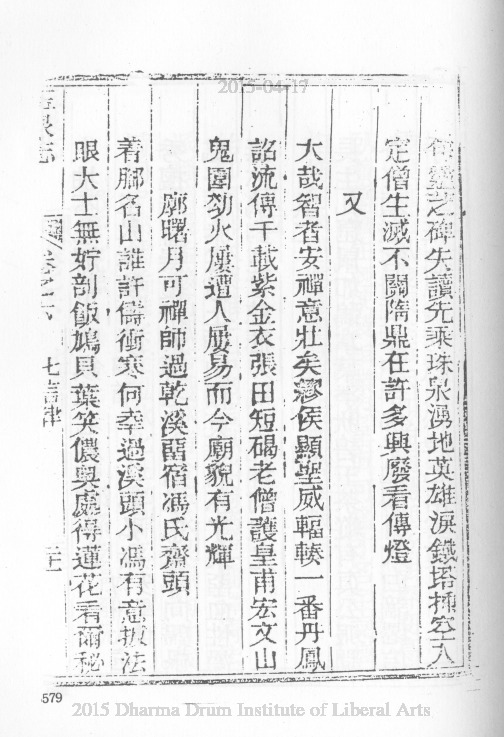 2015-04-17
靈芝碑失讀先乘珠泉湧地英雄淚鐵塔挿空入
定僧生滅不關隋鼎在許多興廢看傳燈
又
大哉智者安禪意壯矣繆侯顯聖威輻輳一番丹鳳
詔流傳千載紫金衣張田短碣老僧護皇甫宏文山
鬼圍劫火屢遭人屢易而今廟貌有光輝
廓曙月可禪師過乾溪畱宿馮氏齋頭
着腳名山誰許儔衝寒何幸過溪頭小馮有意扳法
眼大士無妨剖飯鳩貝葉笑儂奧處得蓮花看爾秘
泉志 卷之六 七言律
579
2015 Dharma Drum Institute of Liberal Arts